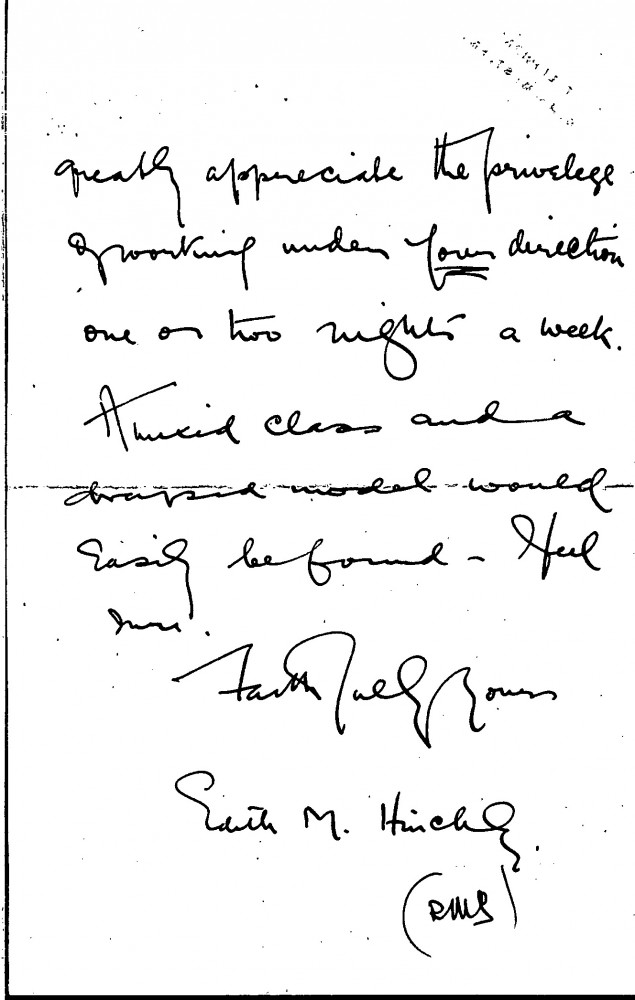 greatly appreciate the privelege
of working under your direction
one or two nights a week.
A mixed class and a
draped model would
easily be found – I feel
sure.
Faithfully Yours
Edith M. Hinchley.
(RMS)